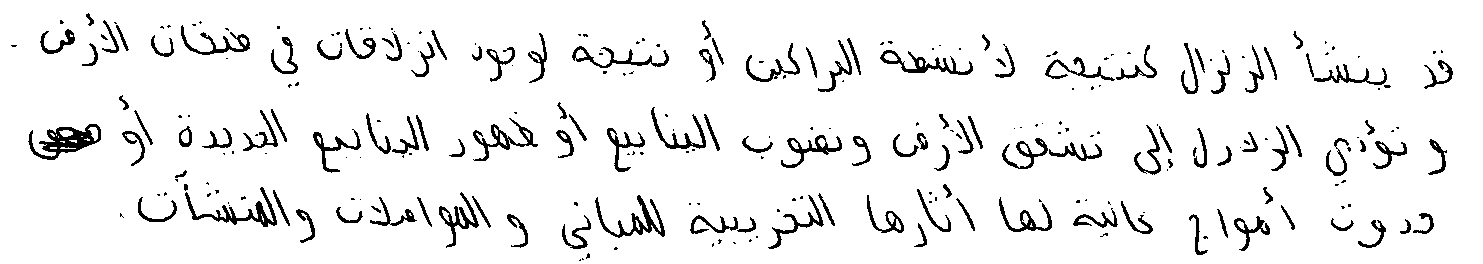 قد ينشأ الزلزال كنتيجة لأنشطة البراكين أو نتيجة لوجود انزلاقات في طبقات الأرض .
و تؤدي الزلازل إلى تشقق الأرض ونضوب الينابيع أو ظهور الينابيع الجديدة أو
حدوث أمواج عاتية لها أثارها التخريبية للمباني و المواصلات والمنشآت .